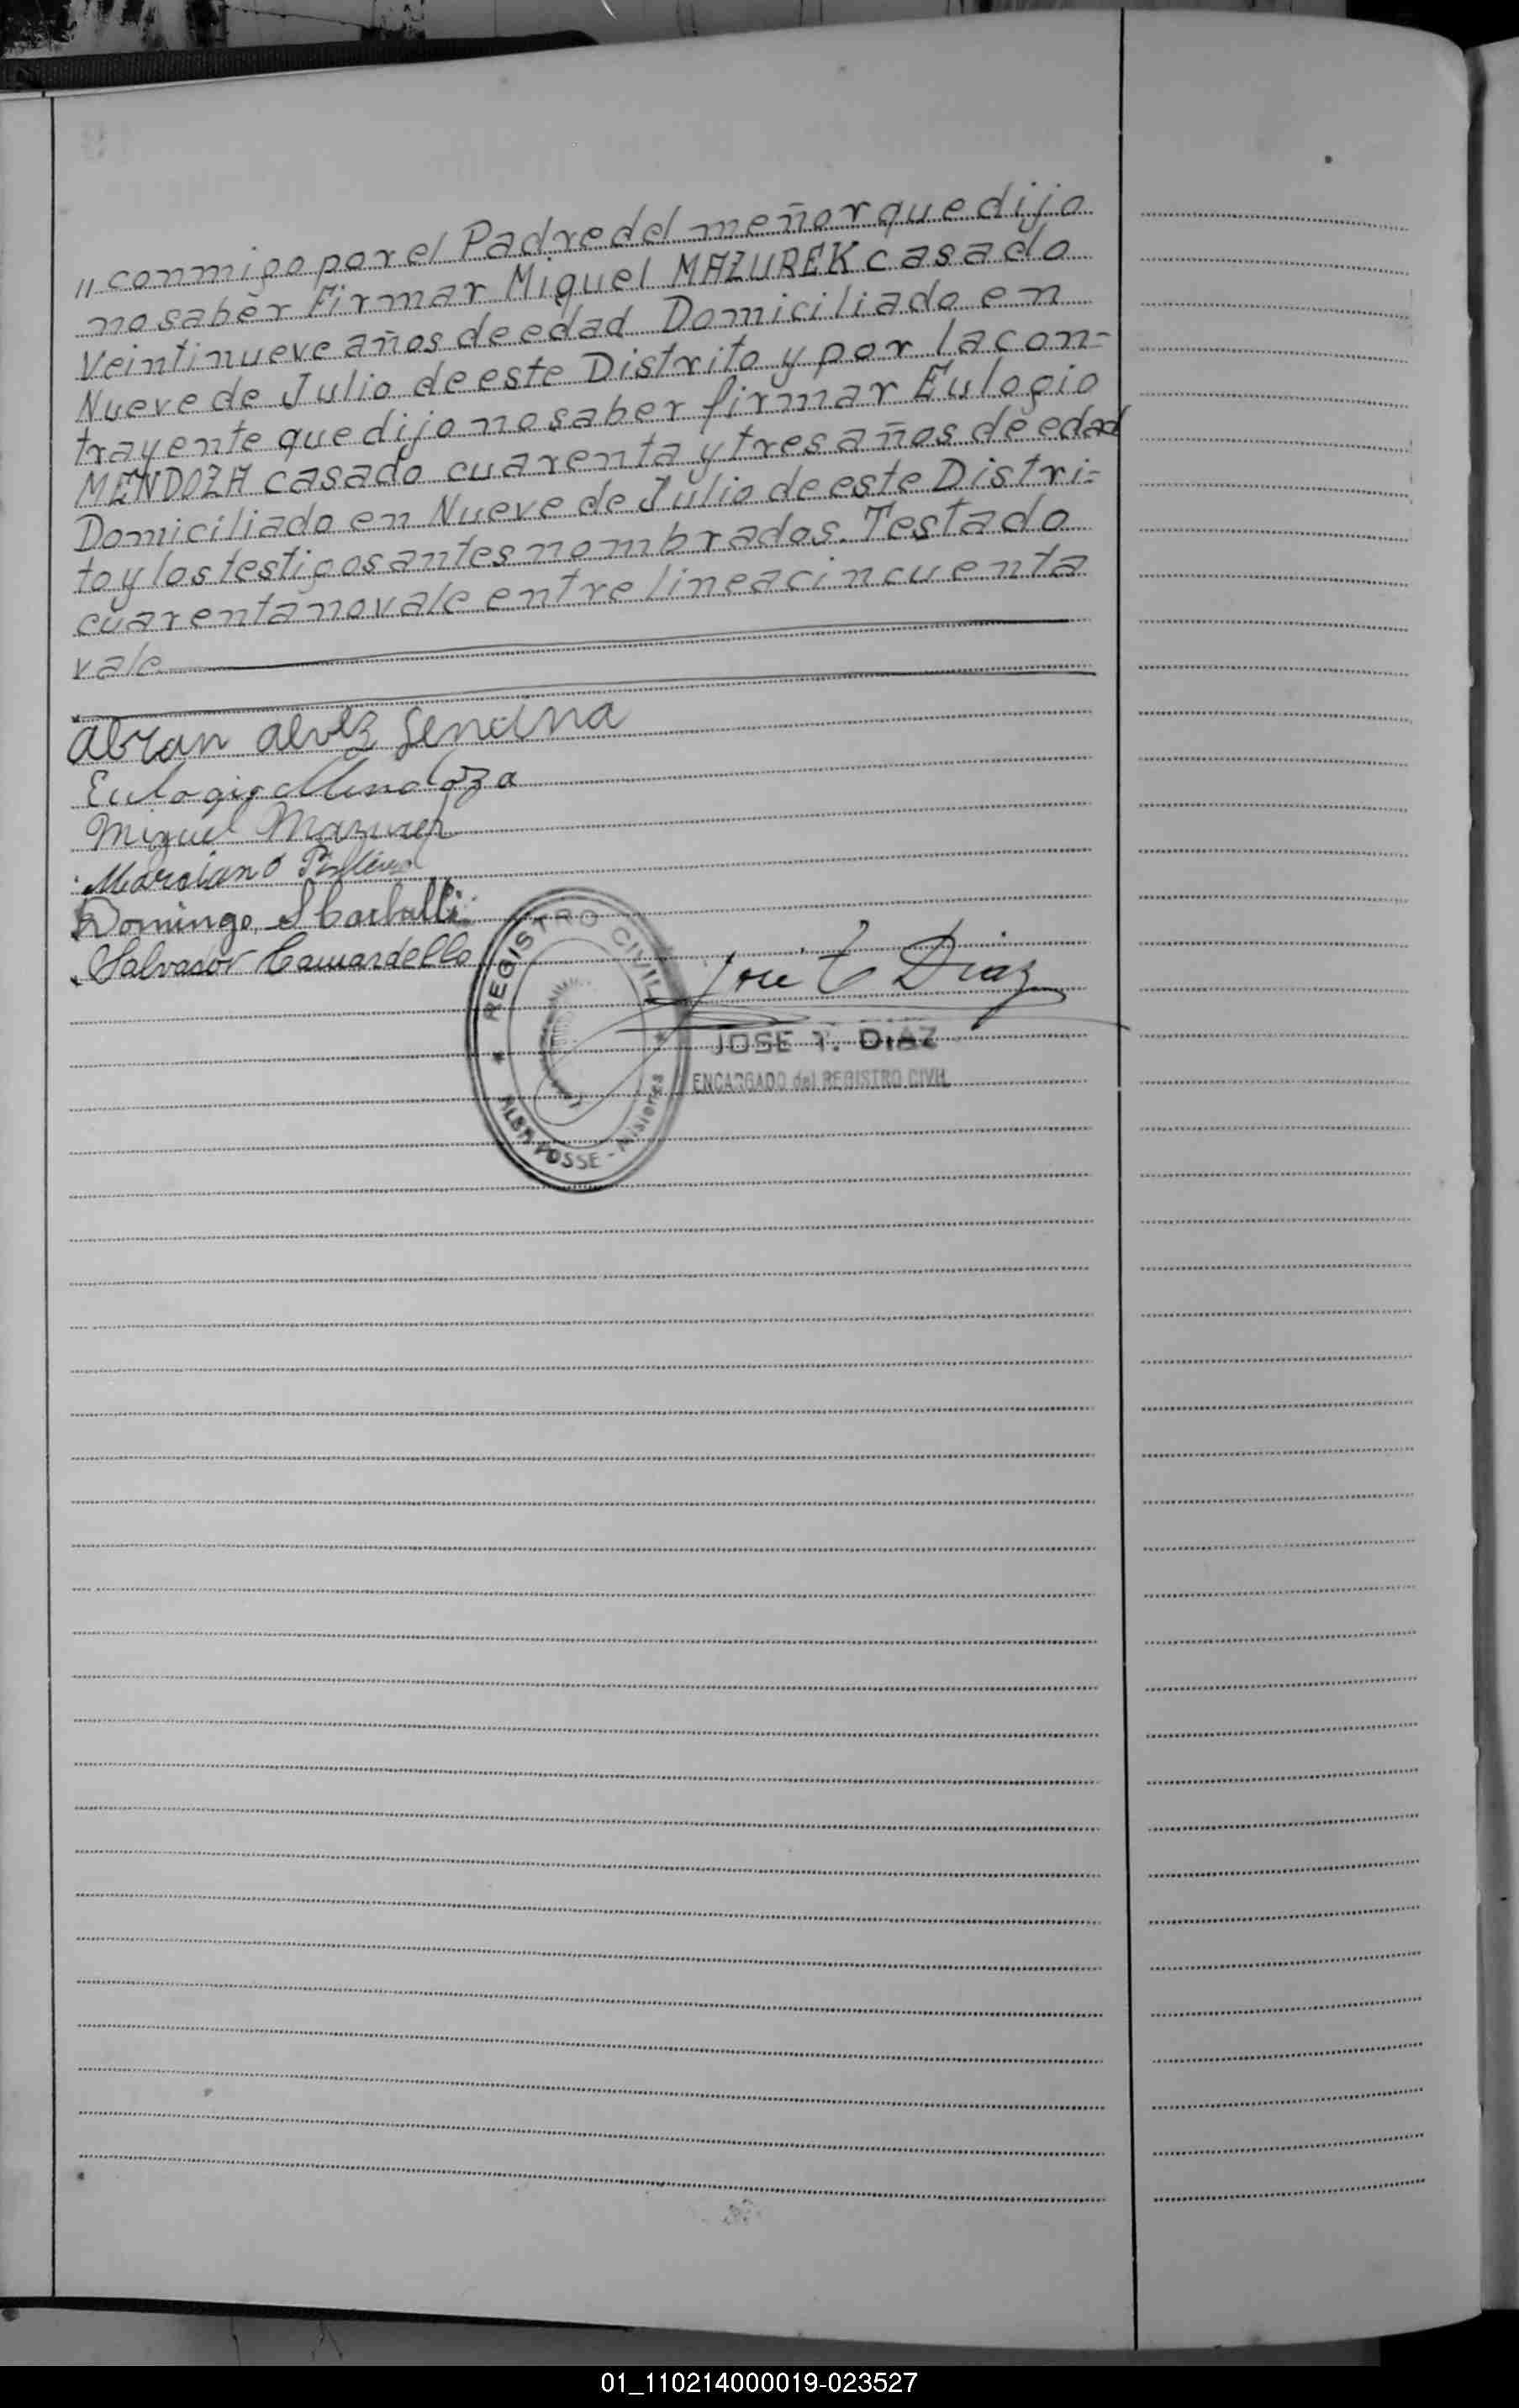 "conmigo por el Padre del meñor que dijo
no saber Firmar Miguel MAZUREK casado
Veintinueve años de edad Domiciliado en
Nueve de Julio de este Distrito y por la con=
trayente que dijo no saber firmar Eulogio
MENDOZA casado cuarenta y tres años de edad
Domiciliado en Nueve de Julio de este Distri=
to y los testigos antes nombrados. Testado
cuarenta no vale entre linea cincuenta
vale
abran alvez
Eulogio Mendoza
Miguel Mazurek
Marciano
Domingo
Salvador Camardello
REGISTRO CIVIL
José T Diaz
JOSE T. DIAZ
ENCARGADO del REGISTRO CIVIL
ALBA POSSE - Misiones
01_110214000019-023527